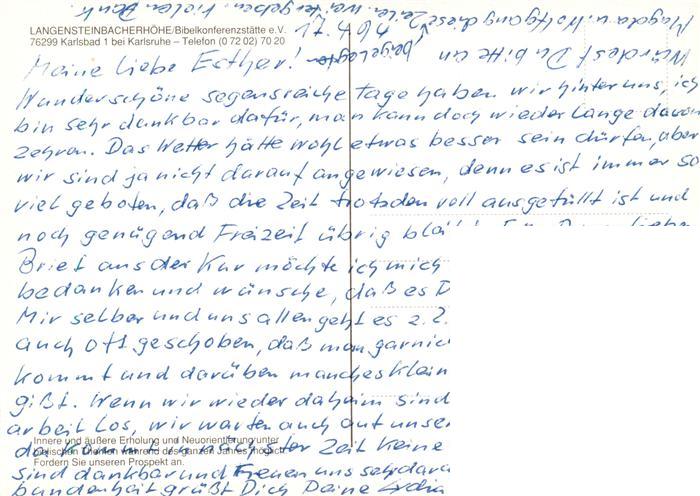 LANGENSTEINBACHERHÖHE/Bibelkonferenzstätte e.V.
76299 Karlsbad 1 bei Karlsruhe – Telefon (0 72 02) 70 20
Würdest Du bitte an
Magda u. Wolfgang diese Zeilen weitergeben. Vielen Dank.
Meine liebe Esther!
Wunderschöne segensreiche Tage haben wir hinter uns, ich
bin sehr dankbar dafür, man kann doch wieder lange davon
zehren. Das Wetter hätte wohl etwas besser sein dürfen, aber
wir sind ja nicht darauf angewiesen, denn es ist immer so
viel geboten, daß die Zeit trotzdem voll ausgefüllt ist und
noch genügend Freizeit übrig
Brief aus der Kur möchte ich mich
bedanken und wünsche, daß es D
Mir selber und uns allen geht es z. Z.
auch oft geschoben, daß man garnic
kommt und darüben manches klein
gißt. Wenn wir wieder daheim sind
arbeit los, wir warten auch auf unser
da kommt in nächster Zeit keine
sind dankbar und freuen uns sehr dara
bundenheit grüßt Dich Deine Lydia
Innere und äußere Erholung und Neuorientierung unter
biblischen Themen während des ganzen Jahres möglich.
Fordern Sie unseren Prospekt an.